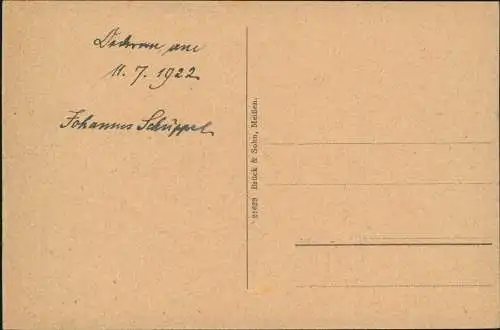 am
11. 7. 1922
Johannes Schüppel
21629 Brück & Sohn, Meißen.